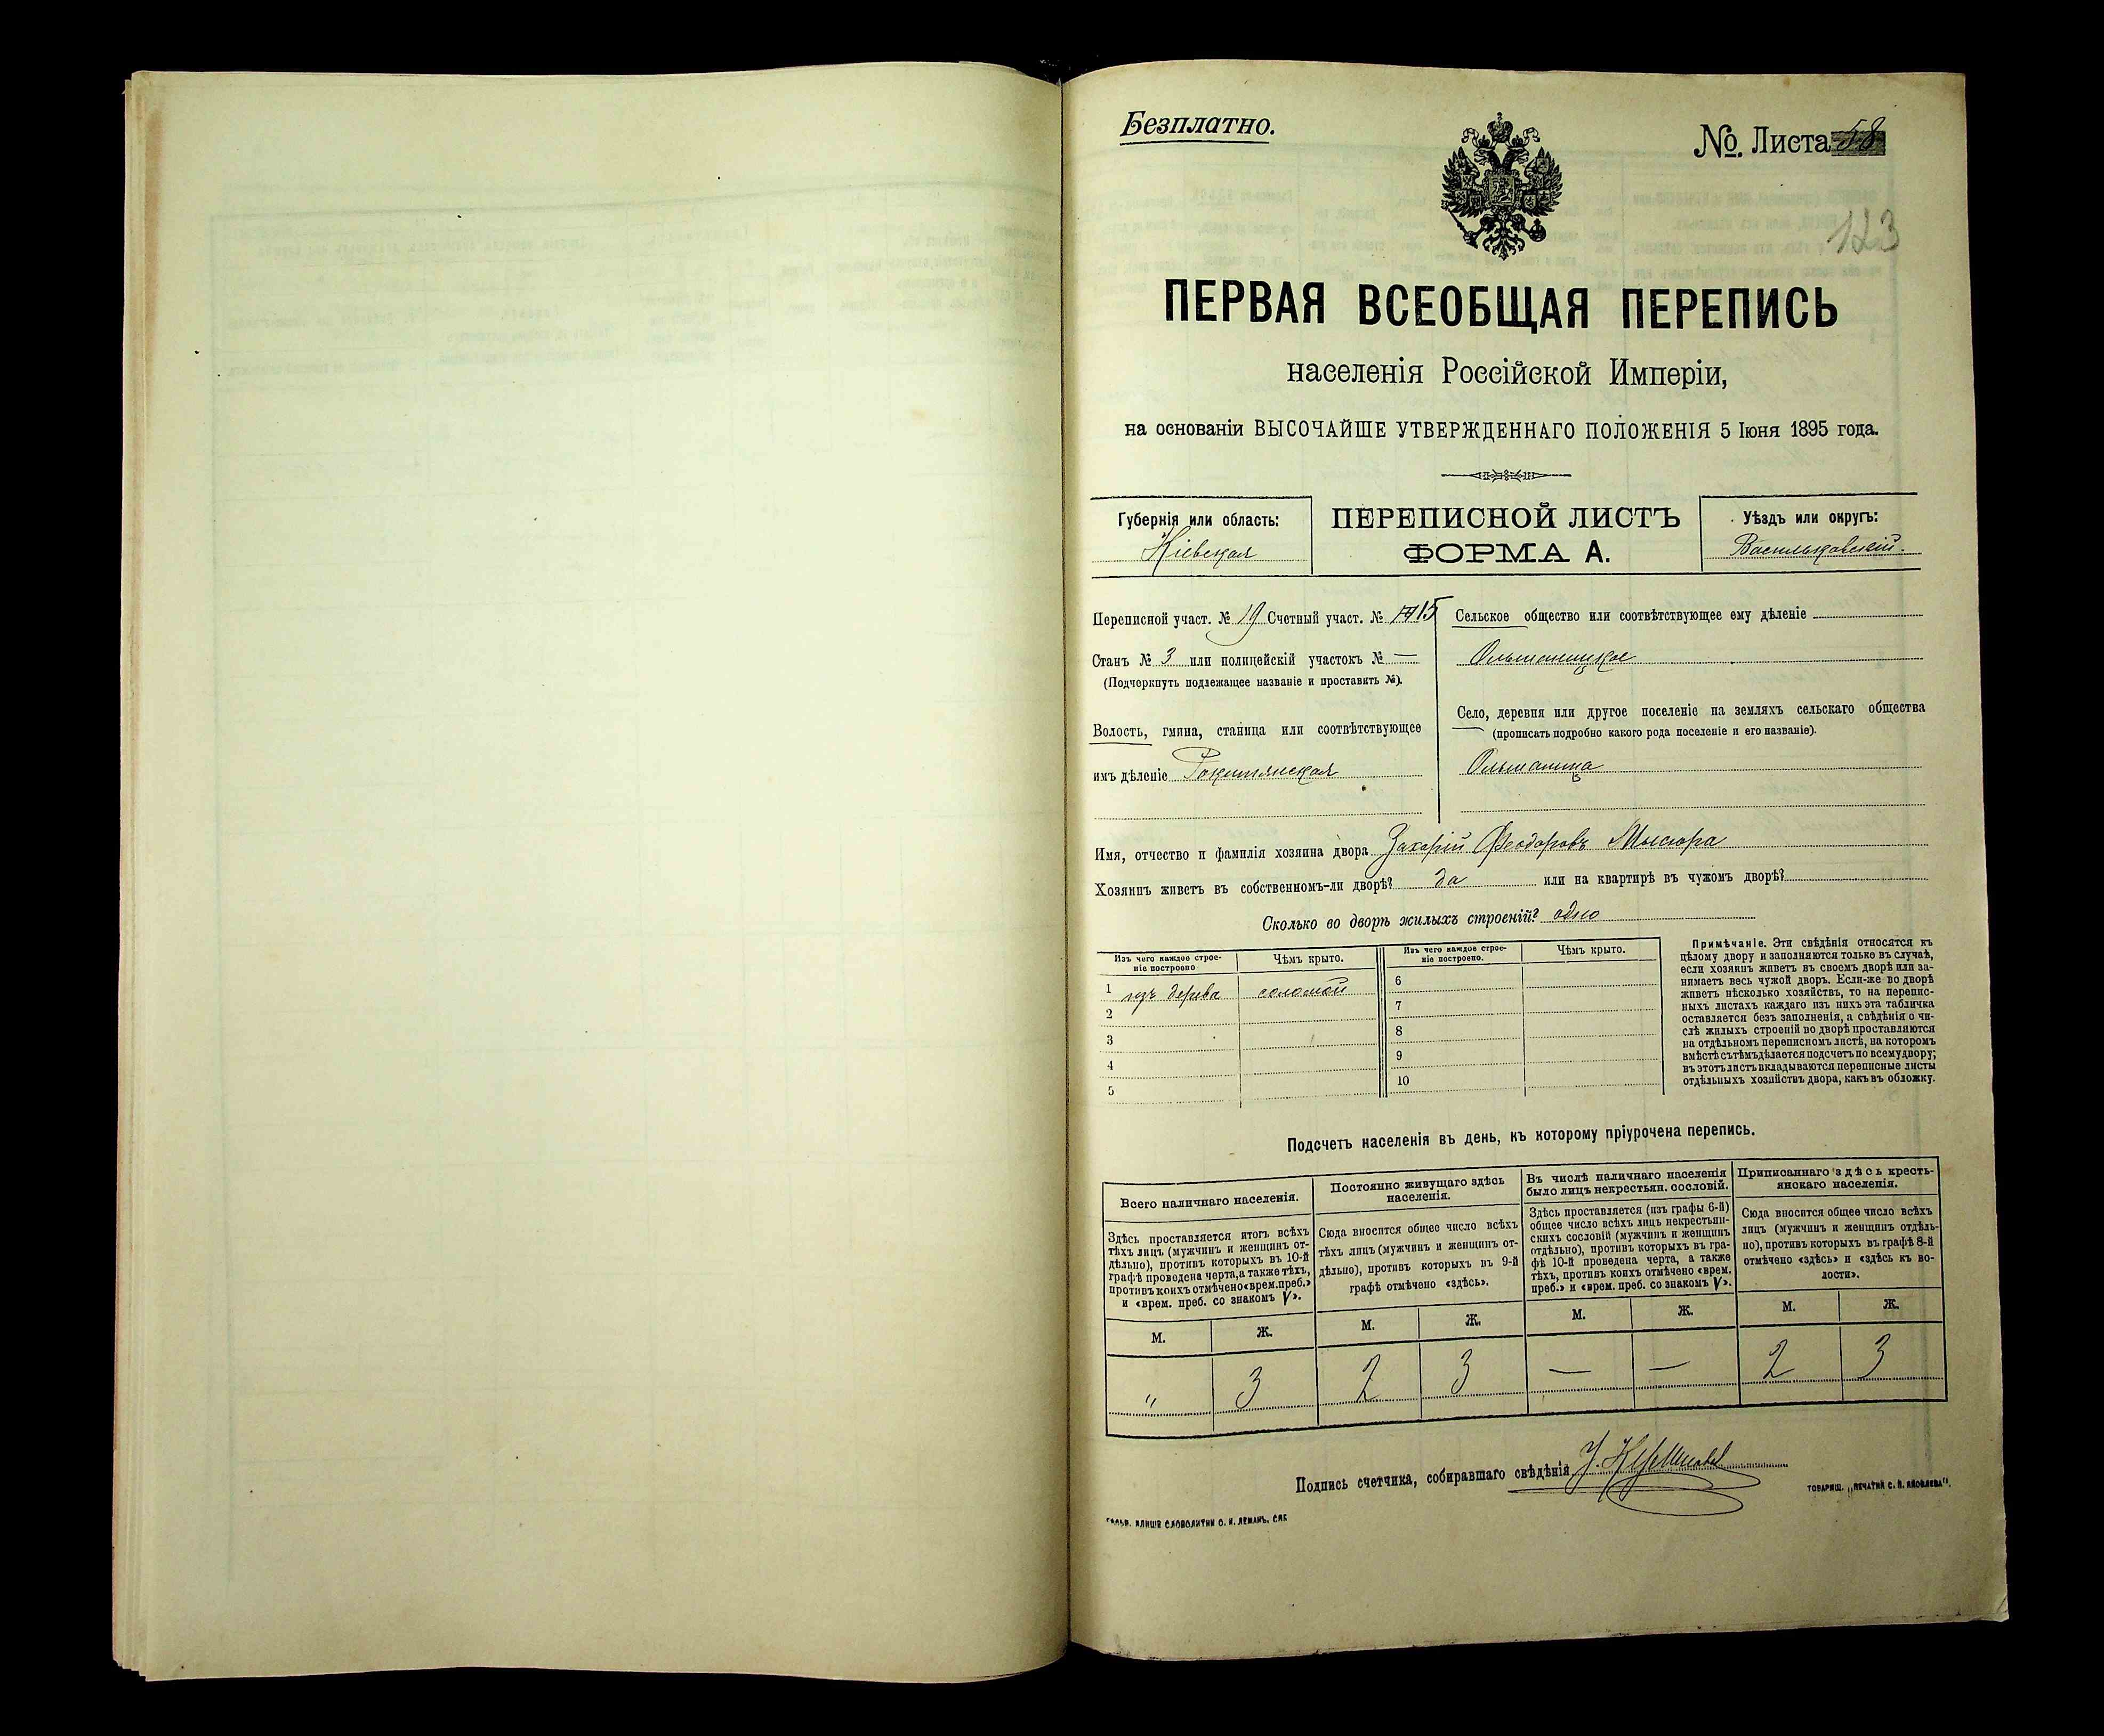 Безплатно.
№ Листа 58
123
ПЕРВАЯ ВСЕОБЩАЯ ПЕРЕПИСЬ
населенія Россійской Имперіи,
на основаніи ВЫСОЧАЙШЕ УТВЕРЖДЕННАГО ПОЛОЖЕНІЯ 5 Іюня 1895 года.
Губернія или область:
Кіевская
ПЕРЕПИСНОЙ ЛИСТЪ
ФОРМА А.
Уѣздъ или округъ:
Васильковскій.
Переписной участ. № 19 Счетный участ. № 15
Станъ № 3 или полицейскій участокъ № —
(Подчеркнуть подлежащее названіе и проставить №).
Волость, гмина, станица или соотвѣтствующее
имъ дѣленіе Рокитянская
Сельское общество или соотвѣтствующее ему дѣленіе
Ольшаницкое
Село, деревня или другое поселеніе на земляхъ сельскаго общества
(прописать подробно какого рода поселеніе и его названіе).
Ольшаница
Имя, отчество и фамилія хозяина двора Захарій Феодоровъ Мисюра
Хозяинъ живетъ въ собственномъ-ли дворѣ? да или на квартирѣ въ чужомъ дворѣ?
Сколько во дворѣ жилыхъ строеній? одно
Изъ чего каждое строе-
ніе построено
Чѣмъ крыто.
Изъ чего каждое строе-
ніе построено.
Чѣмъ крыто.
1 изъ дерева соломой 6
2 7
3 8
4 9
5 10
Примѣчаніе. Эти свѣдѣнія относятся къ
цѣлому двору и заполняются только въ случаѣ,
если хозяинъ живетъ въ своемъ дворѣ или за-
нимаетъ весь чужой дворъ. Если-же во дворѣ
живетъ нѣсколько хозяйствъ, то на перепис-
ныхъ листахъ каждаго изъ нихъ эта табличка
оставляется безъ заполненія, а свѣдѣнія о чи-
слѣ жилыхъ строеній во дворѣ проставляются
на отдѣльномъ переписномъ листѣ, на которомъ
вмѣстѣ съ тѣмъ дѣлается подсчетъ по всему двору;
въ этотъ листъ вкладываются переписные листы
отдѣльныхъ хозяйствъ двора, какъ въ обложку.
Подсчетъ населенія въ день, къ которому пріурочена перепись.
Всего наличнаго населенія.
Здѣсь проставляется итогъ всѣхъ
тѣхъ лицъ (мужчинъ и женщинъ от-
дѣльно), противъ которыхъ въ 10-й
графѣ проведена черта, а также тѣхъ,
противъ коихъ отмѣчено «врем. преб.»
и «врем. преб. со знакомъ V».
Постоянно живущаго здѣсь
населенія.
Сюда вносится общее число всѣхъ
тѣхъ лицъ (мужчинъ и женщинъ от-
дѣльно), противъ которыхъ въ 9-й
графѣ отмѣчено «здѣсь».
Въ числѣ наличнаго населенія
было лицъ некрестьян. сословій.
Здѣсь проставляется (изъ графы 6-й)
общее число всѣхъ лицъ некрестьян-
скихъ сословій (мужчинъ и женщинъ
отдѣльно), противъ которыхъ въ гра-
фѣ 10-й проведена черта, а также
тѣхъ, противъ коихъ отмѣчено «врем.
преб.» и «врем. преб. со знакомъ V».
Приписаннаго здѣсь кресть-
янскаго населенія.
Сюда вносится общее число всѣхъ
лицъ (мужчинъ и женщинъ отдѣль-
но), противъ которыхъ въ графѣ 8-й
отмѣчено «здѣсь» и «здѣсь къ во-
лости».
М. Ж. М. Ж. М. Ж. М. Ж.
" 3 2 3 — — 2 3
Подпись счетчика, собиравшаго свѣдѣнія
ТОВАРИЩ. „ПЕЧАТНИ С. П. ЯКОВЛЕВА“.
КЛИШЕ СЛОВОЛИТНИ О. И. ЛЕМАНЪ. СПБ